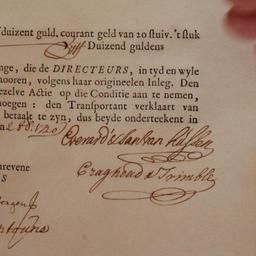 duizent guld. courant geld van 20 stuiv. 't stuk
Duizend guldens
nge, die de DIRECTEURS, in tyd en wyle
hooren, volgens haar origineelen Inleg. Den
ezelve Actie op die Conditie aan te nemen,
noegen: den Transportant verklaart van
betaalt te zyn, dus beyde onderteekent in
1720
Everard & Jan van
Craghead & Trimble
hrevene
S